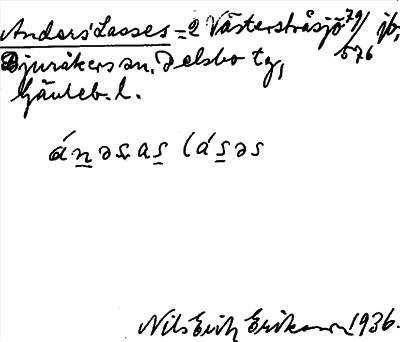 Anders' Lasses = 2 Västerstråsjö 79/576 jb,
Bjuråkers sn. Delsbo tg,
Gävleb. l.
á n ə s a s (á s ə s
Nils Erik Erikson 1936.